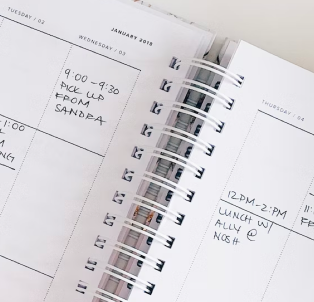 TUESDAY / 02
JANUARY 2018
WEDNESDAY / 03
9:00 - 9:30
PICK UP
FROM
SANDRA
1:00
THURSDAY / 04
12PM-2PM
LUNCH W/
ALLY @
NOSH